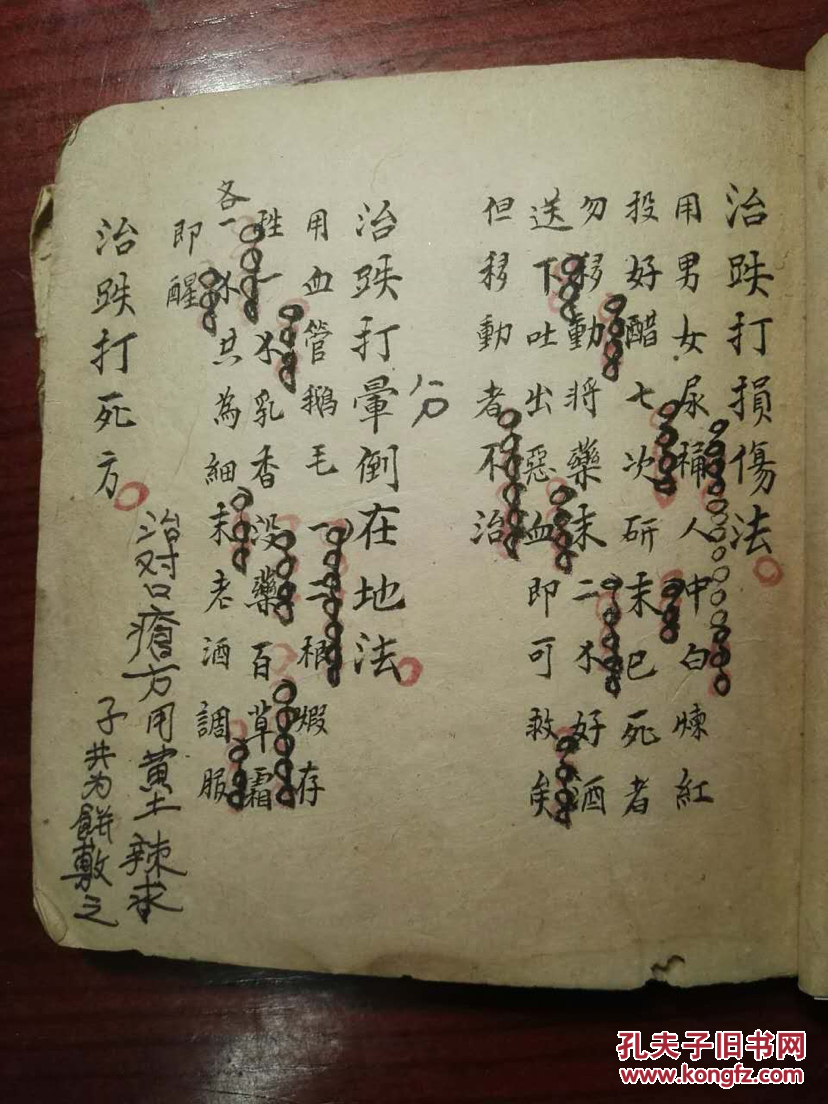 治跌打損傷法
用男女尿桶人中白煉紅
投好醋七次研末已死者
勿移動將藥末二 好酒
送下吐出惡血即可救矣
但移動者不治
治跌打暈倒在地法
用血管鵝毛一二根煆存
性一 乳香沒藥百草霜
各一 共為細末老酒調服
即醒
治跌打死方
治对口瘡方用黄土辣求
子共为餅敷之
孔夫子旧书网
www.kongfz.com